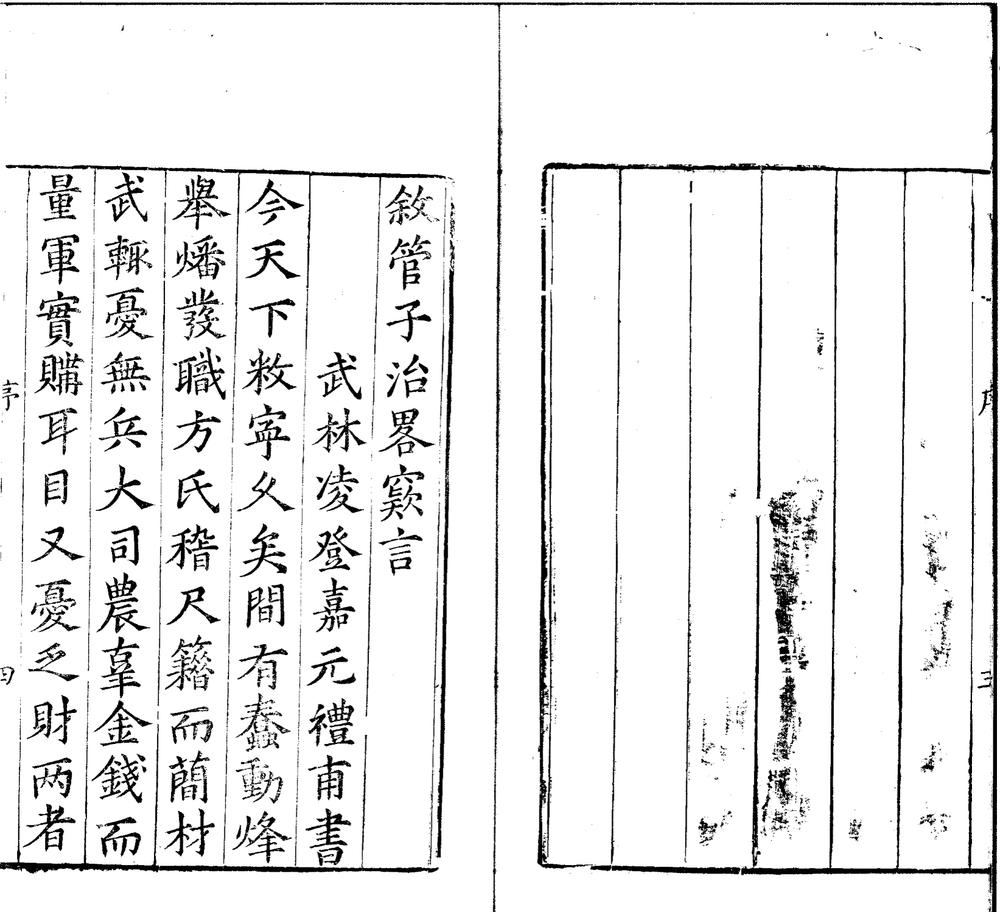 敘管子治畧窾言
武林凌登嘉元禮甫書
今天下敉寧乆矣間有蠢動烽
舉燔發職方氏稽尺籍而蕳材
武輙憂無兵大司農辜金錢而
量軍實購耳目又憂乏財两者
序
四